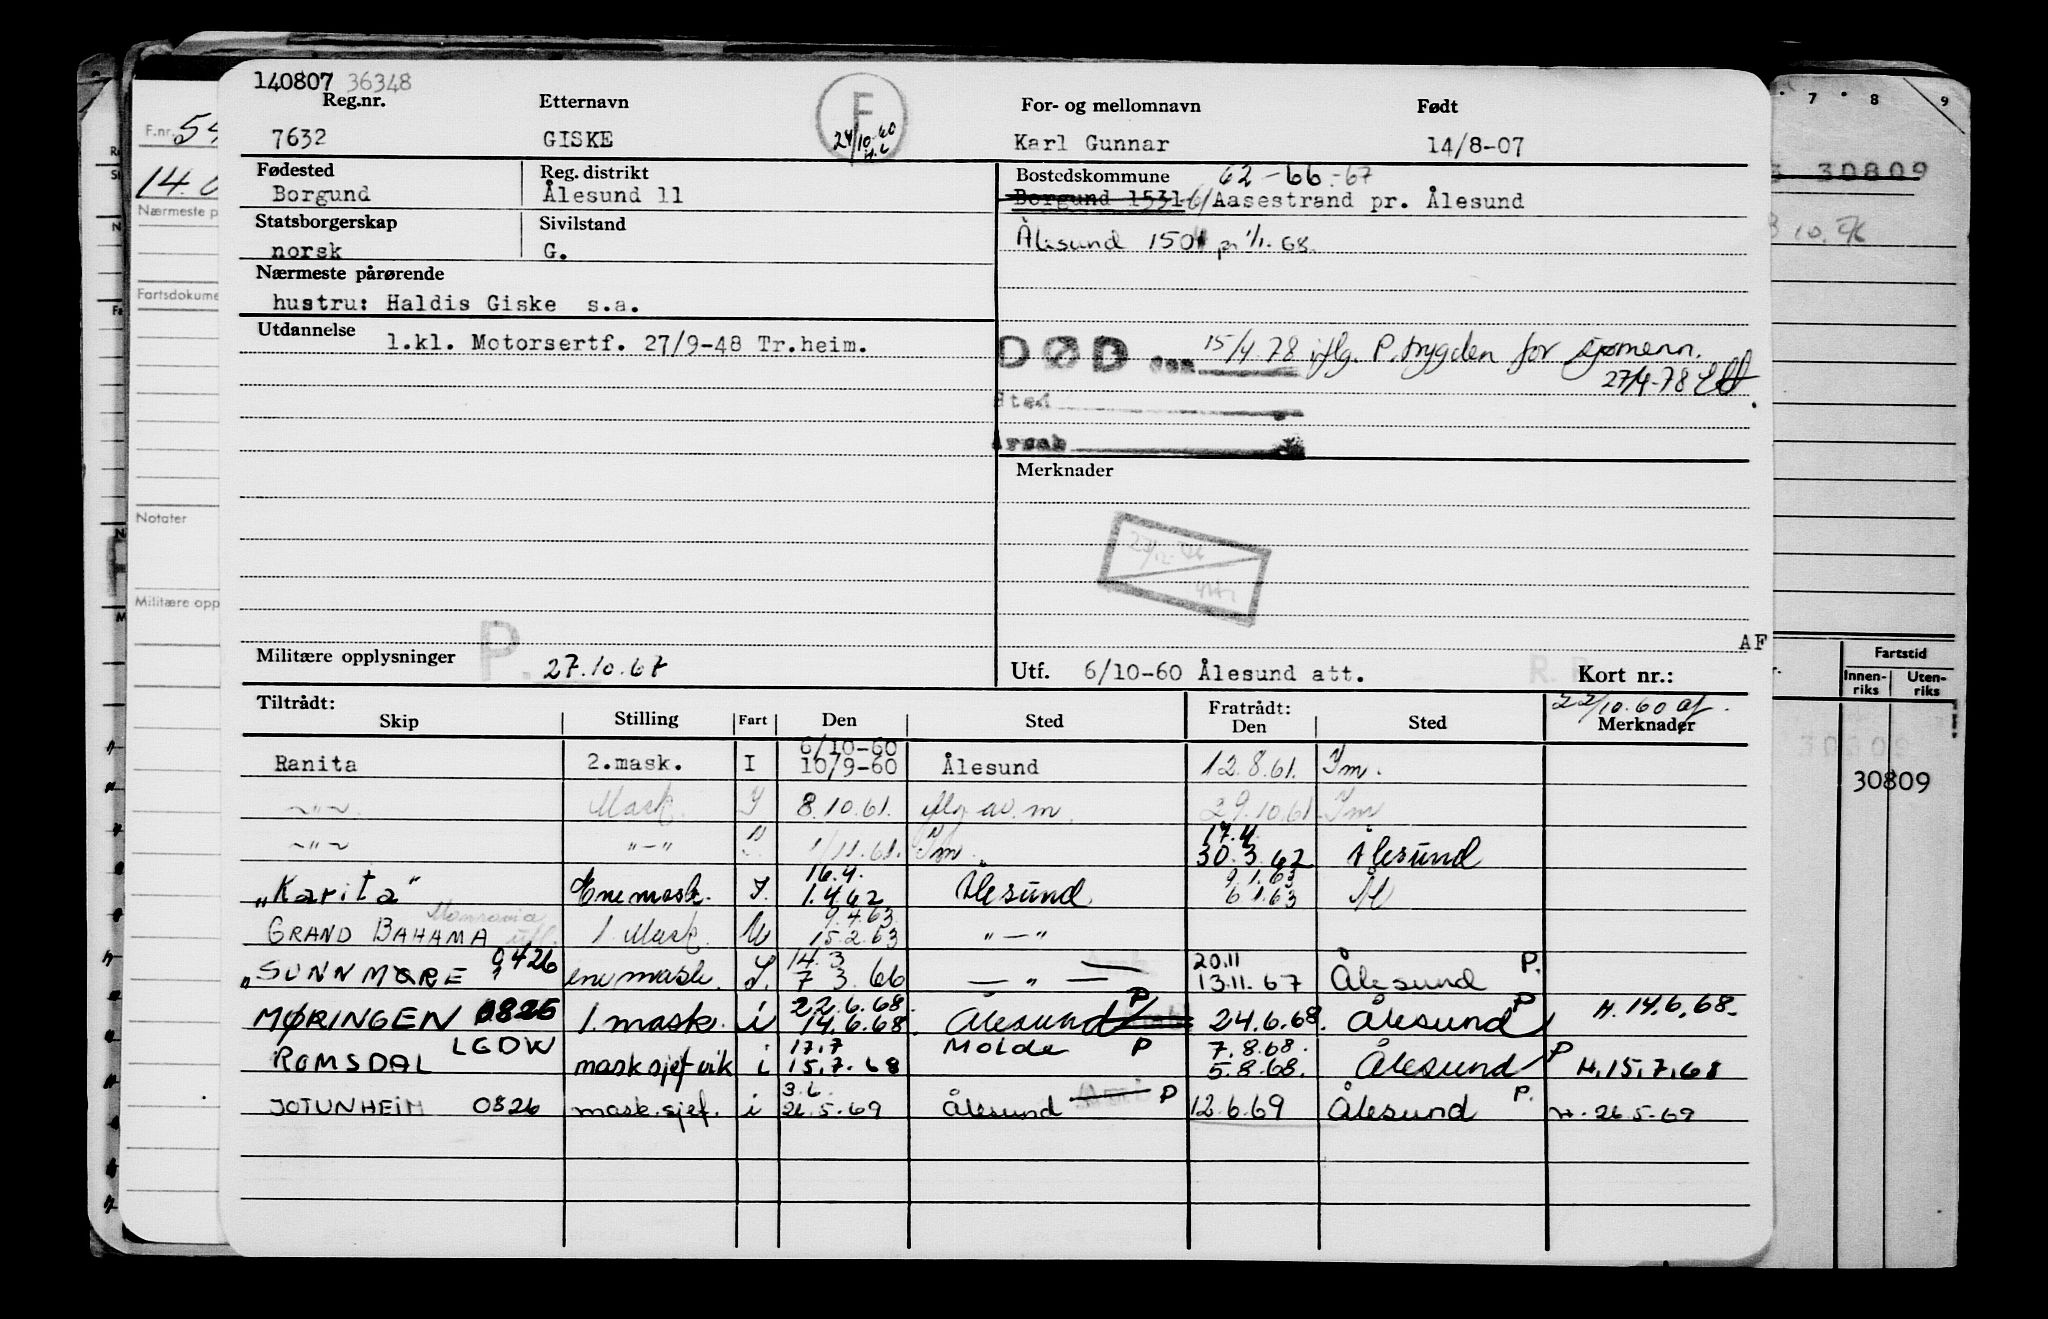 140807 36348
Reg.nr. Etternavn F For- og mellomnavn Født
7632 GISKE 24/10-60 Karl Gunnar 14/8-07
Fødested Reg. distrikt Bostedskommune 62-66-67
Borgund Ålesund 11 Borgund 1531 6/Aasestrand pr. Ålesund
Statsborgerskap Sivilstand
norsk G. Ålesund 1501 pr 1/1.68.
Nærmeste pårørende
hustru: Haldis Giske s.a.
Utdannelse 1.kl. Motorsertf. 27/9-48 Tr.heim.
DØD den 15/4.78 iflg. P.trygden for sjømenn.
27/4-78
Sted
Årsak
Merknader
AF
Militære opplysninger P. 27.10.67 Utf. 6/10-60 Ålesund att. Kort nr.:
Tiltrådt: Fratrådt: 22/10.60 af.
Skip Stilling Fart Den Sted Den Sted Merknader
6/10-60
Ranita 2.mask. I 10/9-60 Ålesund 12.8.61. Im.
~"~ Mask. I 8.10.61. av m. 29.10.61. Im
17.4.
~"~ "-" " 1/11.61. Im 30.3.62 Ålesund
16.4. 9.1.63
„Karita" Enemask. I. 1.4.62 Ålesund 6.1.63 Ål
Monrovia 9.4.63
GRAND BAHAMA utl. 1. Mask. U 15.2.63 "-"
14.3 20.11 P.
„SUNNMØRE 0426 enemask. I. 7 3. 66 — " — 13.11.67 Ålesund
22.6.68. P P
MØRINGEN 0825 1. mask. i 14.6.68. Ålesund 24.6.68. Ålesund H. 14.6.68.
LGDW 17.7 7.8.68. P
ROMSDAL mask sjef vik i 15.7.68 Molde P 5.8.68. Ålesund H. 15.7.68
3.6. P.
JOTUNHEIM 0826 mask.sjef. i 26.5-69 Ålesund P 12.6.69 Ålesund H. 26.5-69
F.nr.
14.0
Nærmeste p
Fartsdokume
Notater
Militære opp
7 8 9
30809
Fartstid
Innen-riks Uten-riks
30809
30809